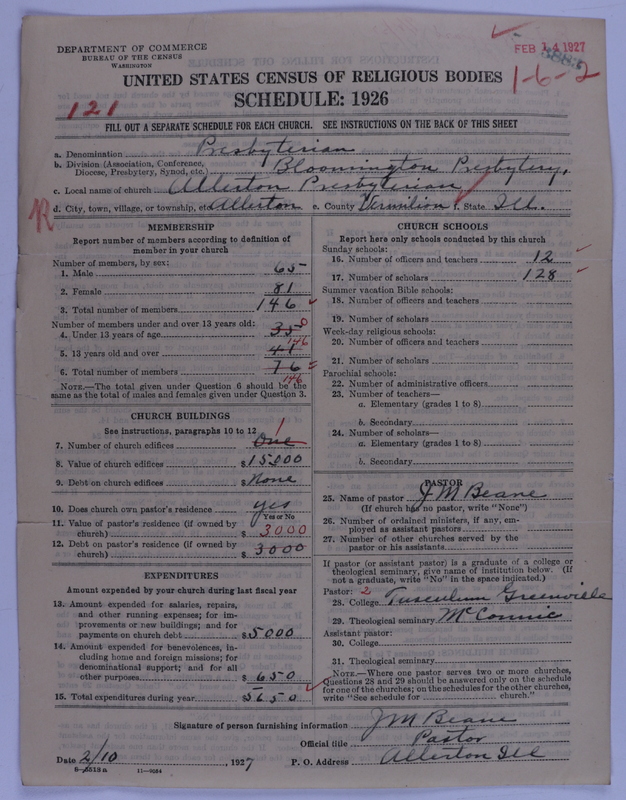 DEPARTMENT OF COMMERCE
BUREAU OF THE CENSUS
WASHINGTON
FEB 14 1927
1-6-2
UNITED STATES CENSUS OF RELIGIOUS BODIES
121
SCHEDULE: 1926
FILL OUT A SEPARATE SCHEDULE FOR EACH CHURCH. SEE INSTRUCTIONS ON THE BACK OF THIS SHEET
a. Denomination Presbyterian
b. Division (Association, Conference, Diocese, Presbytery, Synod, etc.) Bloomington Presbytery.
c. Local name of church Allerton Presbyterian
d. City, town, village, or township, etc. Allerton e. County Vermilion f. State Ill.
MEMBERSHIP
Report number of members according to definition of
member in your church
Number of members, by sex:
1. Male 65
2. Female 81
3. Total number of members 146
Number of members under and over 13 years old:
4. Under 13 years of age 35 0
5. 13 years old and over 41 146
6. Total number of members 76 146
NOTE.—The total given under Question 6 should be the
same as the total of males and females given under Question 3.
CHURCH BUILDINGS
See instructions, paragraphs 10 to 12
7. Number of church edifices One 1
8. Value of church edifices $15000
9. Debt on church edifices $None
10. Does church own pastor's residence yes
Yes or No
11. Value of pastor's residence (if owned by
church) $ 3000
12. Debt on pastor's residence (if owned by
church) $ 3000
EXPENDITURES
Amount expended by your church during last fiscal year
13. Amount expended for salaries, repairs,
and other running expenses; for im-
provements or new buildings; and for
payments on church debt $5000
14. Amount expended for benevolences, in-
cluding home and foreign missions; for
denominational support; and for all
other purposes $ 650
15. Total expenditures during year $5650
CHURCH SCHOOLS
Report here only schools conducted by this church
Sunday schools:
16. Number of officers and teachers 12
17. Number of scholars 128
Summer vacation Bible schools:
18. Number of officers and teachers
19. Number of scholars
Week-day religious schools:
20. Number of officers and teachers
21. Number of scholars
Parochial schools:
22. Number of administrative officers
23. Number of teachers—
a. Elementary (grades 1 to 8)
b. Secondary
24. Number of scholars—
a. Elementary (grades 1 to 8)
b. Secondary
PASTOR
25. Name of pastor J M Beane
(If church has no pastor, write "None")
26. Number of ordained ministers, if any, em-
ployed as assistant pastors
27. Number of other churches served by the
pastor or his assistants
If pastor (or assistant pastor) is a graduate of a college or
theological seminary, give name of institution below. (If
not a graduate, write "No" in the space indicated.)
Pastor: 2
28. College Tusculum Greenville
29. Theological seminary McCormic
Assistant pastor:
30. College
31. Theological seminary
NOTE.—Where one pastor serves two or more churches,
Questions 28 and 29 should be answered only on the schedule
for one of the churches; on the schedules for the other churches,
write "See schedule for church."
Signature of person furnishing information J M Beane
Official title Pastor
Date 2/10, 1927 P. O. Address Allerton Ill
6-5518a 11-9084